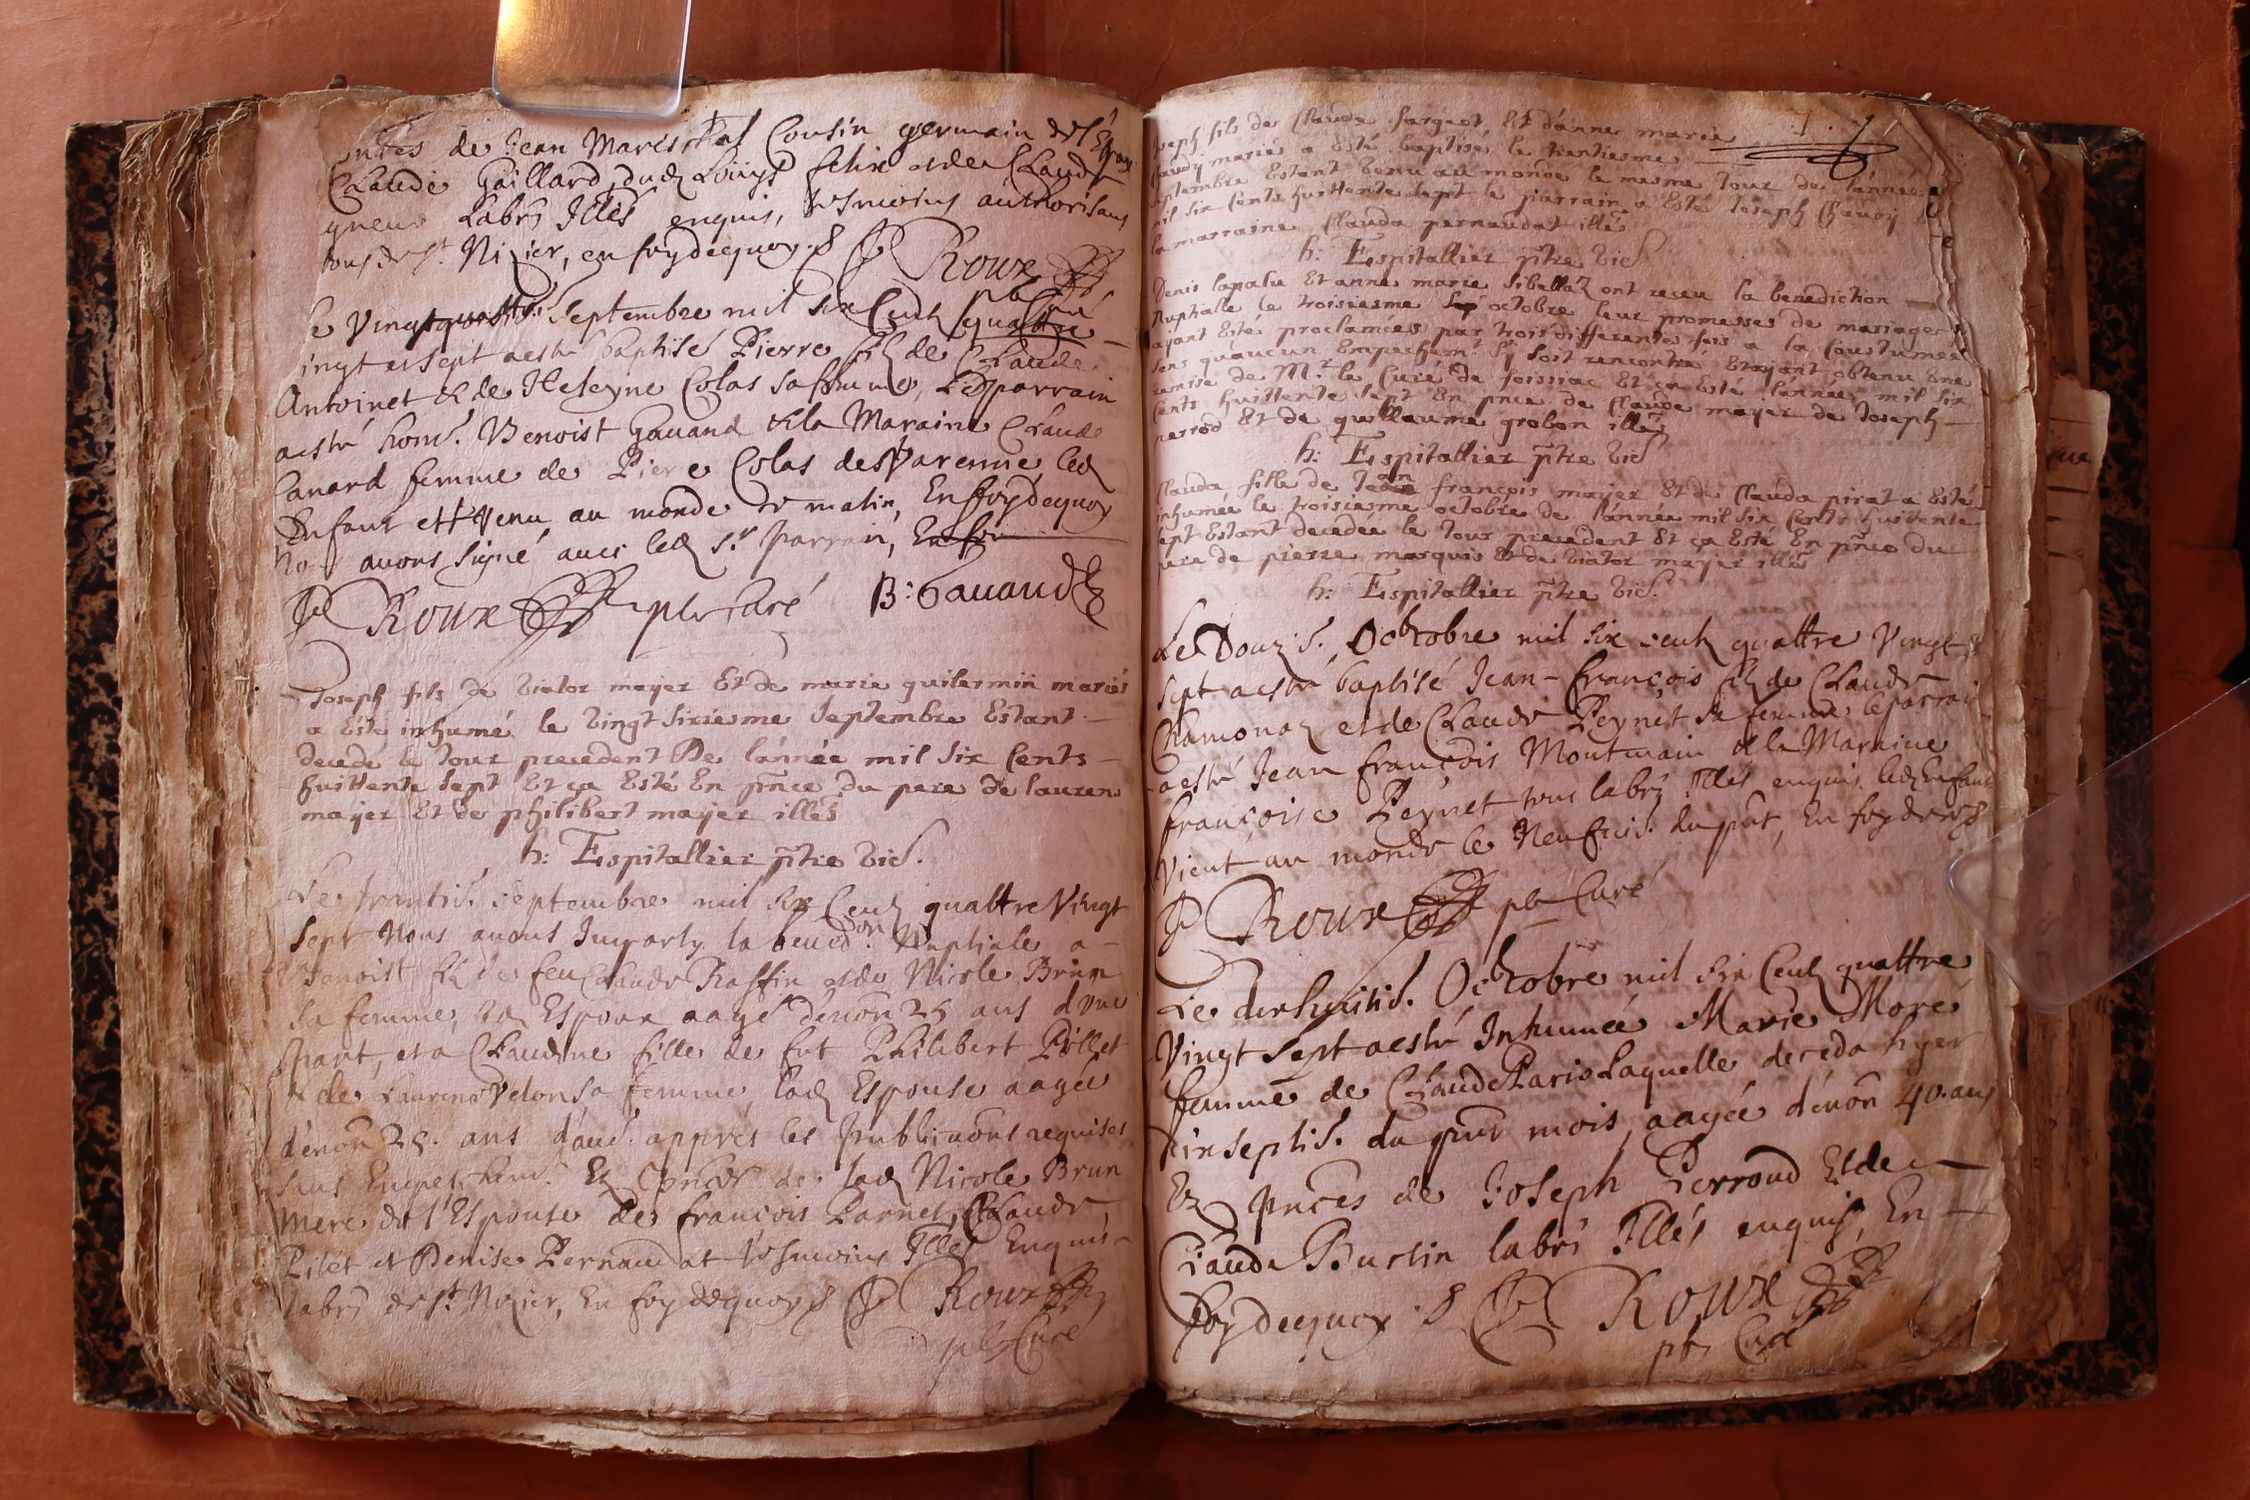 de Jean Mareschal Cousin germain de l'Espoux
Claude Gaillard, dud Louys felix et de Claude
labrs Illés enquis, tesmoins authorisans
tous de st. Nizier, en foy de quoy. § J Roux
pb Curé
le Vingtquattris. Septembre mil six Centz quattre
vingt et sept a esté baptisé Pierre filz de Claude
Antoinet & de Heleyne Colas sa femme, Le parrain
a esté hond. Benoist Gauand & la Maraine Claude
Canard femme de Pierre Colas des Varenne, led
Enfant est venu au monde ce matin, En foy de quoy
Nos avons signé avec led sr. parrain, En foy
J Roux pbr Curé B: Gauand
Joseph fils de Viator mayer Et de marie guilermin mariés
a Esté inhumé le vingt sixiesme septembre Estant
decede le Jour precedent De lánnée mil six Cents
huittente sept Et ça Esté En pñce du pere de lauren
mayer Et de philibert mayer illés
h: Espitallier p̃tre vic̃.
Le trantis. septembre mil six Centz quattre Vingt
sept Nous avons Imparty la bened.on Nuptiale a
Benoist filz de feu Claude Raffin et de Nicole Brun
sa femme, led Espoux aagé d'enõn 25 ans d'vne
part, et a Claudine fille de fut Philibert Pillet
& de Laurence Velon sa femme, lad Espouse aagée
d'enõn 25. ans d'aut. appres les publicaõns requises
sans Empeschemt. Ez p̃nces de lad Nicole Brun
mere de l'Espouse de françois Parnet, Claude
Pilet et Denise Pernaudat tesmoins Illés Enquis
labrs de st. Nizier, En foy de quoy § J Roux
pbr Curé
Joseph fils de Claude fargeot Et dánne marie
Chavoy mariés a Esté baptisé le trentiesme
septembre Estant venu au monde le mesme Jour de lánnée
mil six Cents huittente sept le parrain a Esté Joseph Chavoy
la marraine Clauda pernaudat illés
h: Espitallier p̃tre vic̃.
Denis lapalu Et anne marie sibellaz ont receu la benediction
Nuptiale le troisiesme octobre leur promesses de mariage
ayant Esté proclamées par trois differentes fois a la Coustumes
sans quáucun Empechemt. sÿ soit rencontré Et ayant obtenu Vne
remise de Mr. le Curé de foissiac Et ça Esté lánnée mil six
Cents huittente sept En pñce de Claude mayer de Joseph
perrod Et de guillaume grobon illés
h: Espitallier p̃tre vic̃
Clauda fille de Jean françois mayer Et de Clauda pirat a Esté
inhumée le troisiesme octobre de lánnée mil six Cents huittente
sept Estant decedée le Jour precedent Et ça Esté En pñce du
pere de pierre marquis Et de Viator mayer illés
h: Espitallier p̃tre vic̃.
Le Douzis. Octobre mil six centz quattre Vingt &
sept a esté baptisé Jean-François filz de Claude
Chamonaz et de Claude Peynet sa femme, le parrain
a esté Jean françois Montmain & la Maraine
françoise Peynet tous labrs Illés enquis, led Enfant
Vient au monde le Neufvis. du pñt, En foy de quoy §
J Roux pbr Curé
Le dixhuitis. Octobre mil six Centz quattre
Vingt sept a esté Inhumée Marie More
femme de Claude Paris Laquelle deceda hyer
dixseptis. du pñt mois, aagée d'enõn 40. ans
Ez pñces de Joseph Perroud Et de
Claude Burtin labrs Illés enquis, En
foy de quoy. § J Roux
pbr Curé